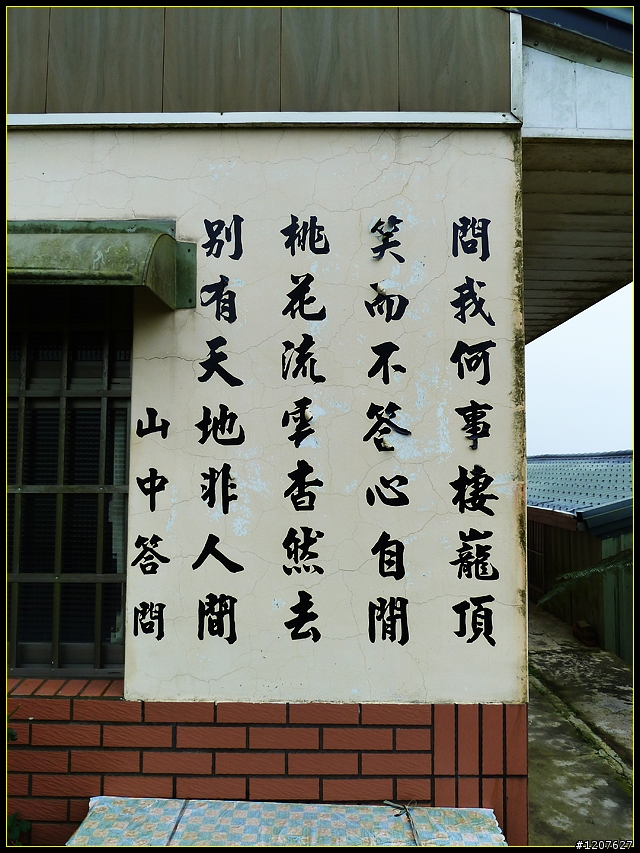 問我何事棲巃頂
笑而不答心自閒
桃花流雲杳然去
別有天地非人間
山中答問
#1207627